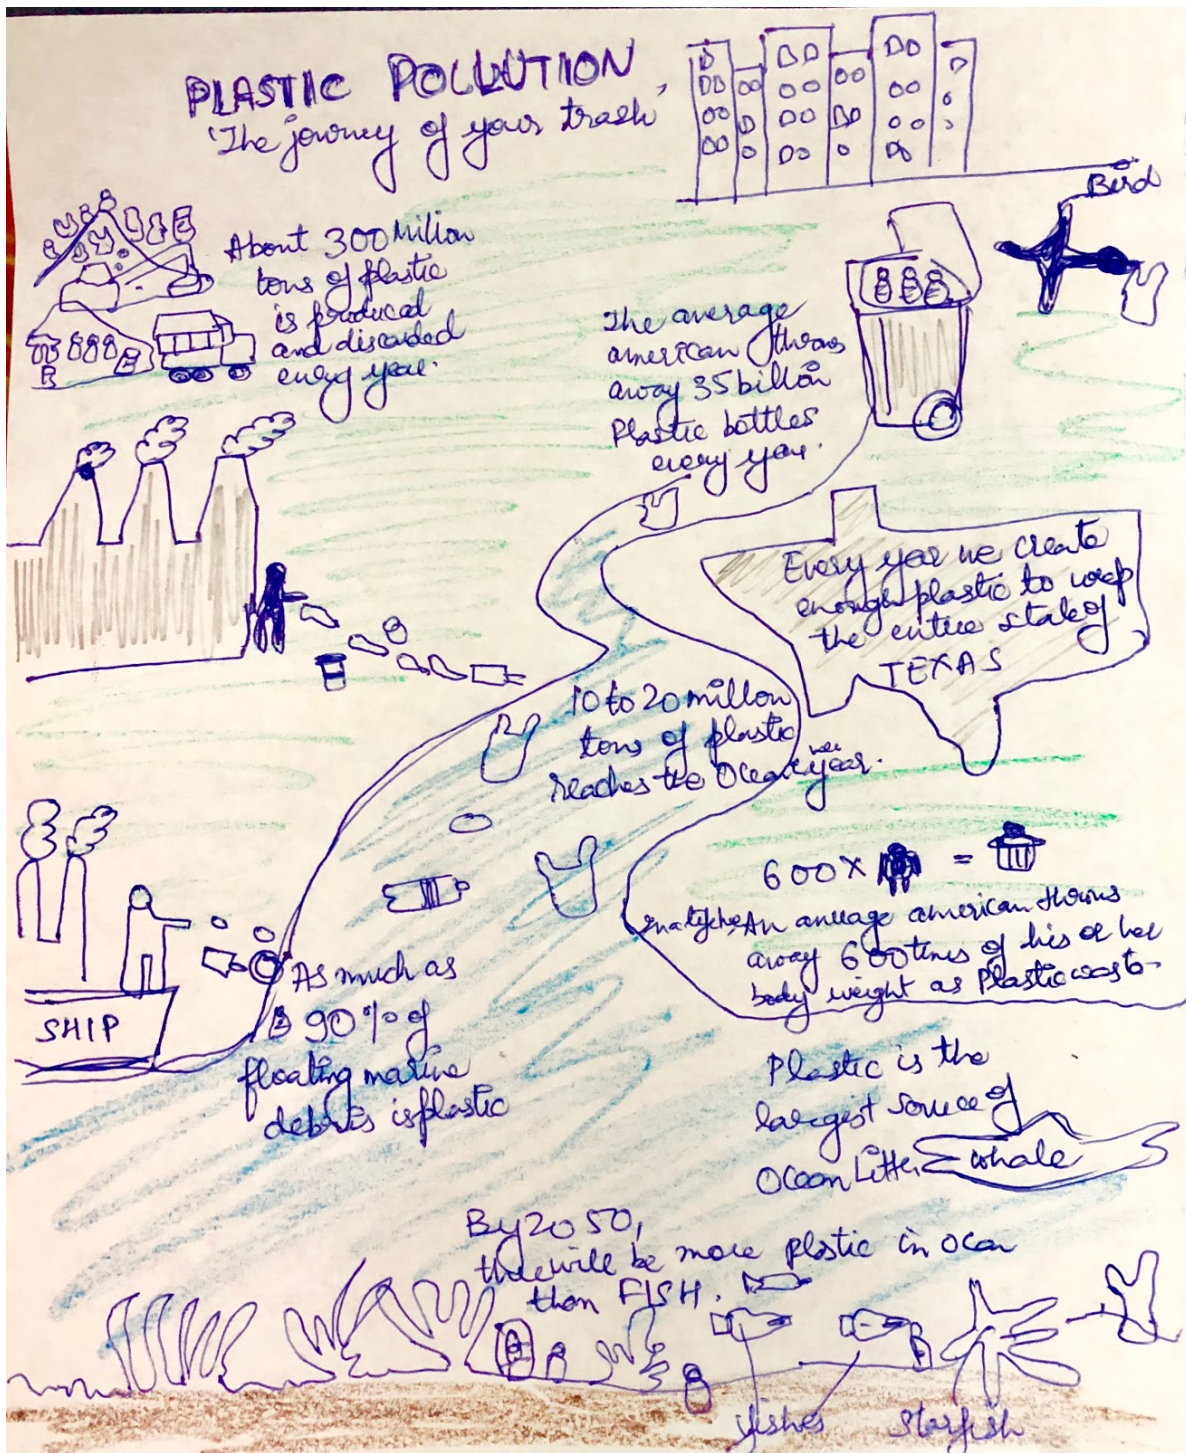 PLASTIC POLLUTION
'The journey of your trash'
Bird
About 300 Million
tons of plastic
is produced
and discarded
every year.
The average
american throws
away 35 billon
Plastic bottles
every year.
Every year we create
enough plastic to wrap
the entire state of
TEXAS
10 to 20 millon
tons of plastic
reaches the Ocean year.
600X =
An average american throws
away 600 times of his or her
body weight as Plastic waste
SHIP
As much as
90% of
floating marine
debris is plastic
Plastic is the
largest source of
Ocean Litter
whale
By 2050,
there will be more plastic in ocean
than FISH.
fishes
starfish